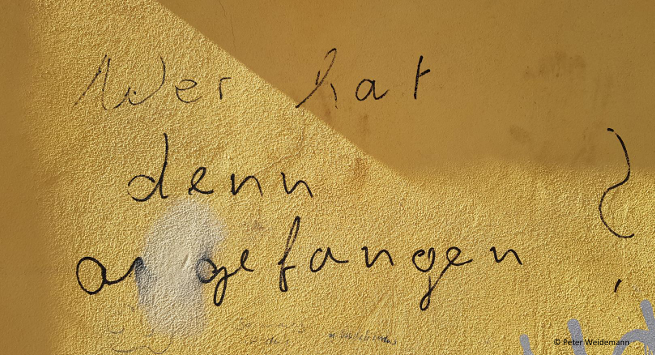 Wer hat
denn
angefangen ?
© Peter Weidemann